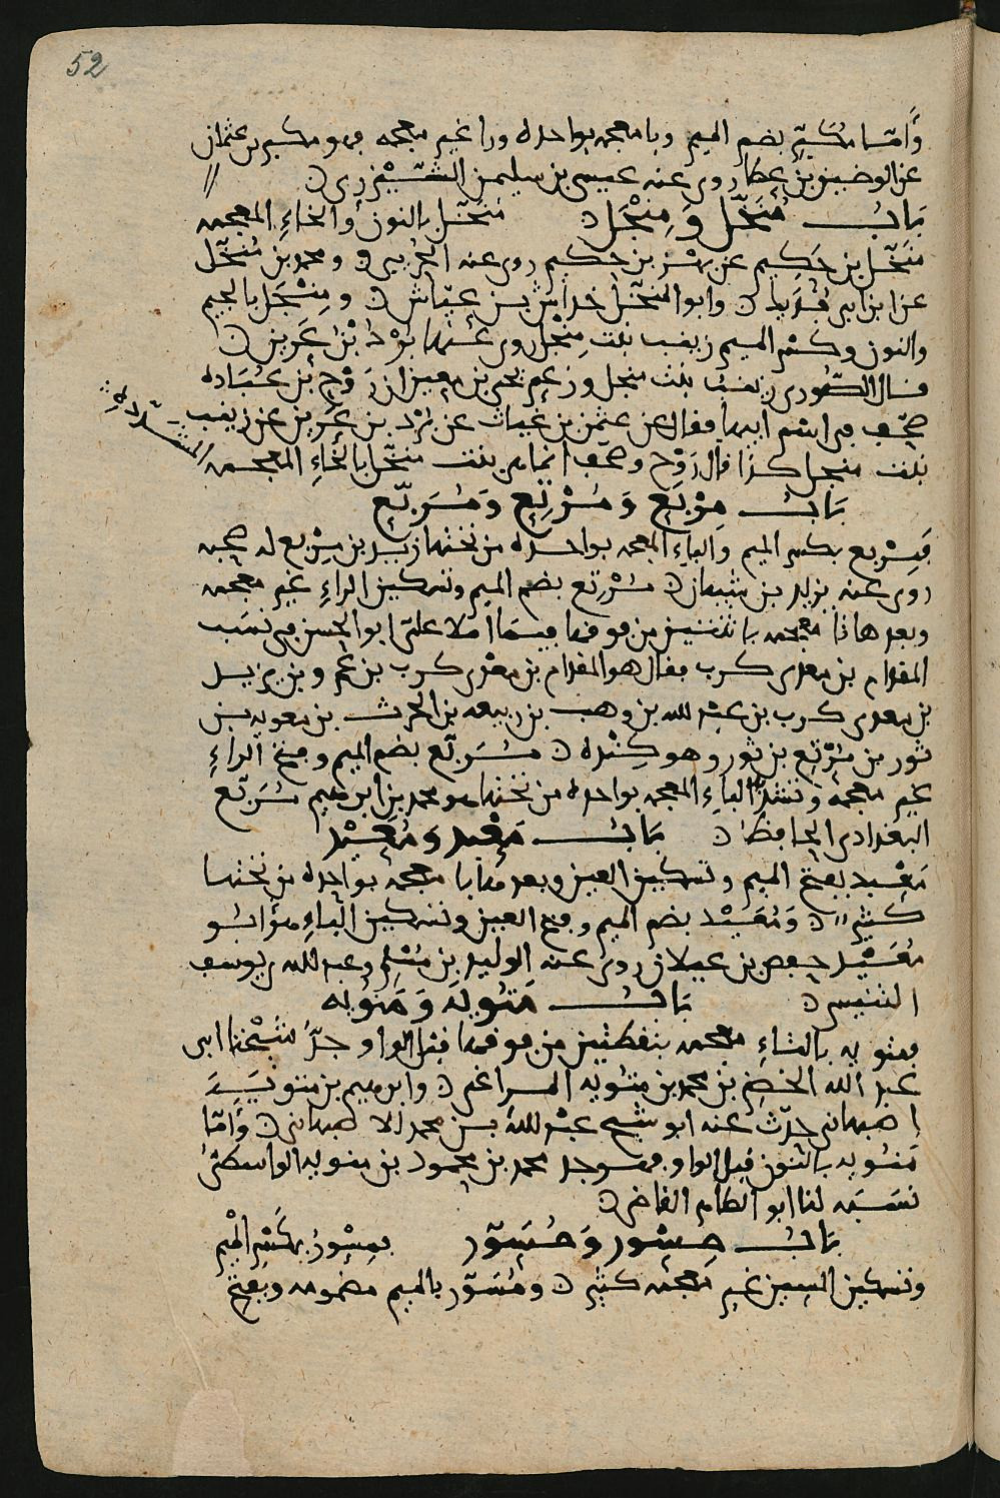 52
وأمّا مُكَبِّر بضم الميم وبا معجمه بواحده ورا غير معجمه فهو مكبر بن عثمان
عن الوضين بن عطا روى عنه عيسى بن سليمن الشَّيْزَرِي
بَابُ مُنَخَّل وَمِنْجَل مُنَخَّل بالنون والخاءِ المعجمه
مُنَخَّل بن حَكِيم عن بهز بن حكيم روى عنه ومحمد بن مُنَخَّل
عن ابن ابي فُدَيك وابو المنخّل خداش بن عيّاش ومِنْجَل بالجيم
والنون وكسر الميم زينب بنت مِنْجَل روى عنها بُرْدُ بْنُ عَرِين
قال الصُّورى زينبُ بنت منجل وزعم يحيى بن معين ان رَوْح بن عُبَاده
صحّف في اسْم ابيها فقال عن عثمن بن غياث عن بُرْد بن عَرِين عن زينب
بنت منجل كذا قال رَوْح وصحف انما هى بنت منخّل بالخاءِ المعجمه
المشدده
بَابُ مِرْبَع وَمُرْتِع وَمُرَبَّع
فَمِرْبع بكسر الميم والباءِ المعجمه بواحده من تحتها زيد بن مِرْبع له صحبه
روى عنه يزيد بن شيبان مُرْتِع بضم الميم وتسكين الراءِ غير معجمه
وبعدها تا معجمه باثنتين من فوقها فيما املا علىّ ابو الحسن في نسَب
المقدام بن معدى كرب فقال هو المقدام بن معدى كرب بن عَمرو بن يزيد
بن معدى كرب بن عبد لله بن وهب بن ربيعه بن الحرث بن معويه بن
ثور بن مُرْتِع بن ثور وهو كِنْده مُرَبَّع بضم الميم وفتح الراءِ
غير معجمه وتشديد الباءِ المعجمه بواحده من تحتها هو محمد بن ابرهيم مُرَبَّع
البغدادى الحافظُ بَابُ مَعْبد وَمُعَيْد
مَعْبد بفتح الميم وتسكين العين وبعدها با معجمه بواحده من تحتها
كثير وَمُعَيْد بضم الميم وفتح العين وتسكين الياءِ فهو أبو
مُعَيْد حفص بن غيلان روى عنه الوليد بن مُسْلِم وعبد لله بن يوسف
التنيسى بَابُ مَتُّويَه وَمَنُويَه
فمتويه بالتاءِ معجمه بنقطتين من فوقها قبل الواو جدُّ شَيْخنا ابى
عبد الله الخضر بن محمد بن متويه المراغى وابرهيم بن متويه
اصبهانى حدّث عنه ابو شيخ عبد لله بن محمد الاصبهانى وأمّا
مَنُويه بالنون قبل الواو فهو جد محمد بن محمود بن منويه الواسطىُّ
نسَبَه لنا ابو الطاهر القاضى
بَابُ مِسْوَر وَمُسَوَّر فمِسْوَرُ بكَسْرِ المِيْم
وتسكين السين غير معجمه كثير ومُسَوَّر بالميم مضمومه وبفتح